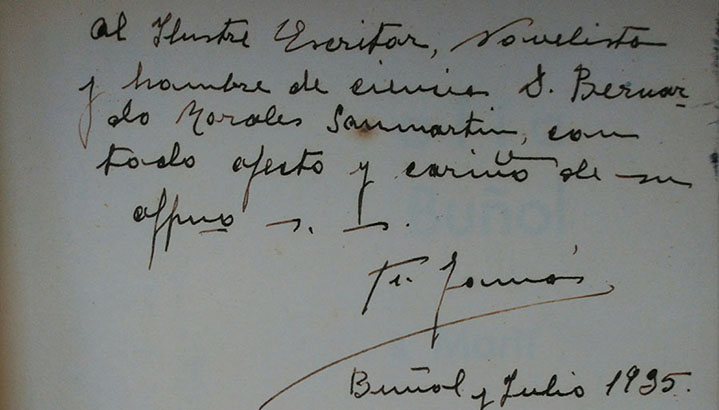 Al Ilustre Escritor, Novelista
y hombre de ciencia D. Bernar-
do Morales Sanmartin, con
todo afecto y cariño de su
affmo s. s.
Buñol y Julio 1935.